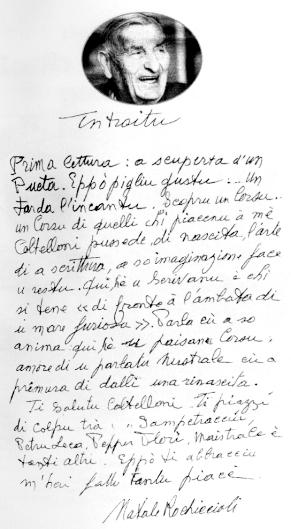 Introitu
Prima lettura : a scuperta d'un
Pueta. Eppò pigliu gustu... Un
tarda l'incantu. Scopru un Corsu..
un Corsu di quelli chi piacenu à mè
Coltelloni pussede, di nascita, l'arte
di a scrittura, a so imaginazione face
u restu. Quì hè u Scrivanu è chi
si tene « di fronte à l'ambata di
u mare furiosu ». Parla cù a so
anima quì hè paisana Corsu,
amore di u parlatu nustrale cù a
primura di dalli una rinascita.
Ti salutu Coltelloni. Ti piazzi
di colpu trà : Sampetracciu,
Petru Leca, Peppu Flori, Maistrale è
tanti altri. Eppò ti abbracciu
m'hai fattu tantu piacè.
Natale Rochiccioli